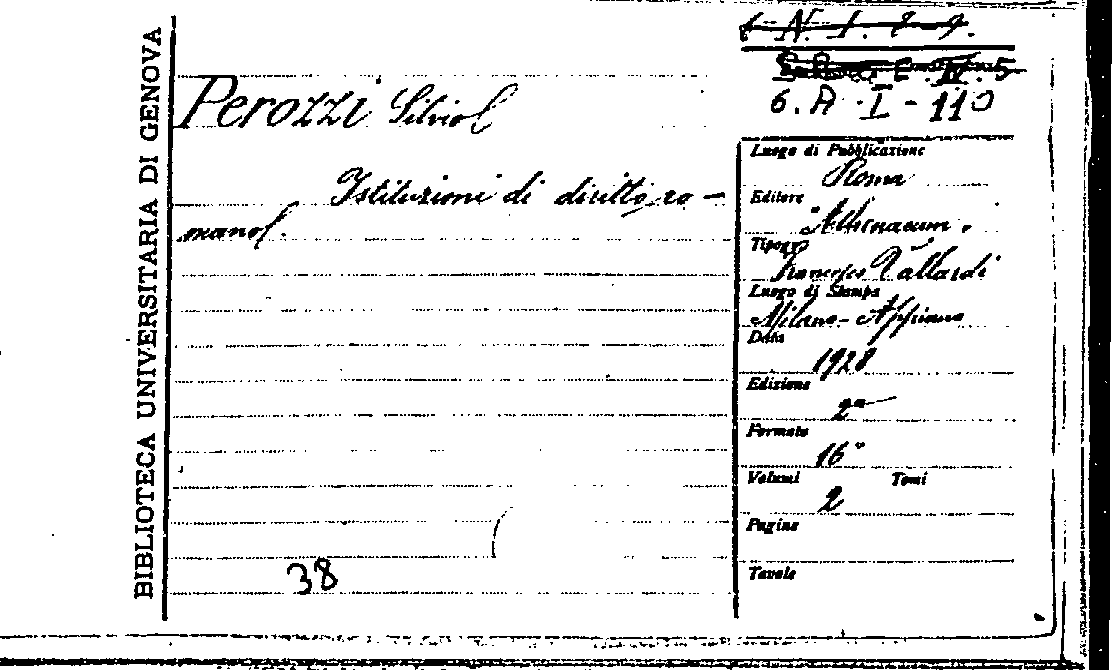 BIBLIOTECA UNIVERSITARIA DI GENOVA
N. I. 8-9.
IV. 5
6. A. I - 110
Perozzi Silvio
Istituzioni di diritto ro-
mano.
Luogo di Pubblicazione
Roma
Editore
"Athenaeum"
Tipogr.
Francesco Vallardi
Luogo di Stampa
Milano - Appiano
Data
1928
Edizione
2ª
Formato
16°
Volumi Tomi
2
Pagine
Tavole
38